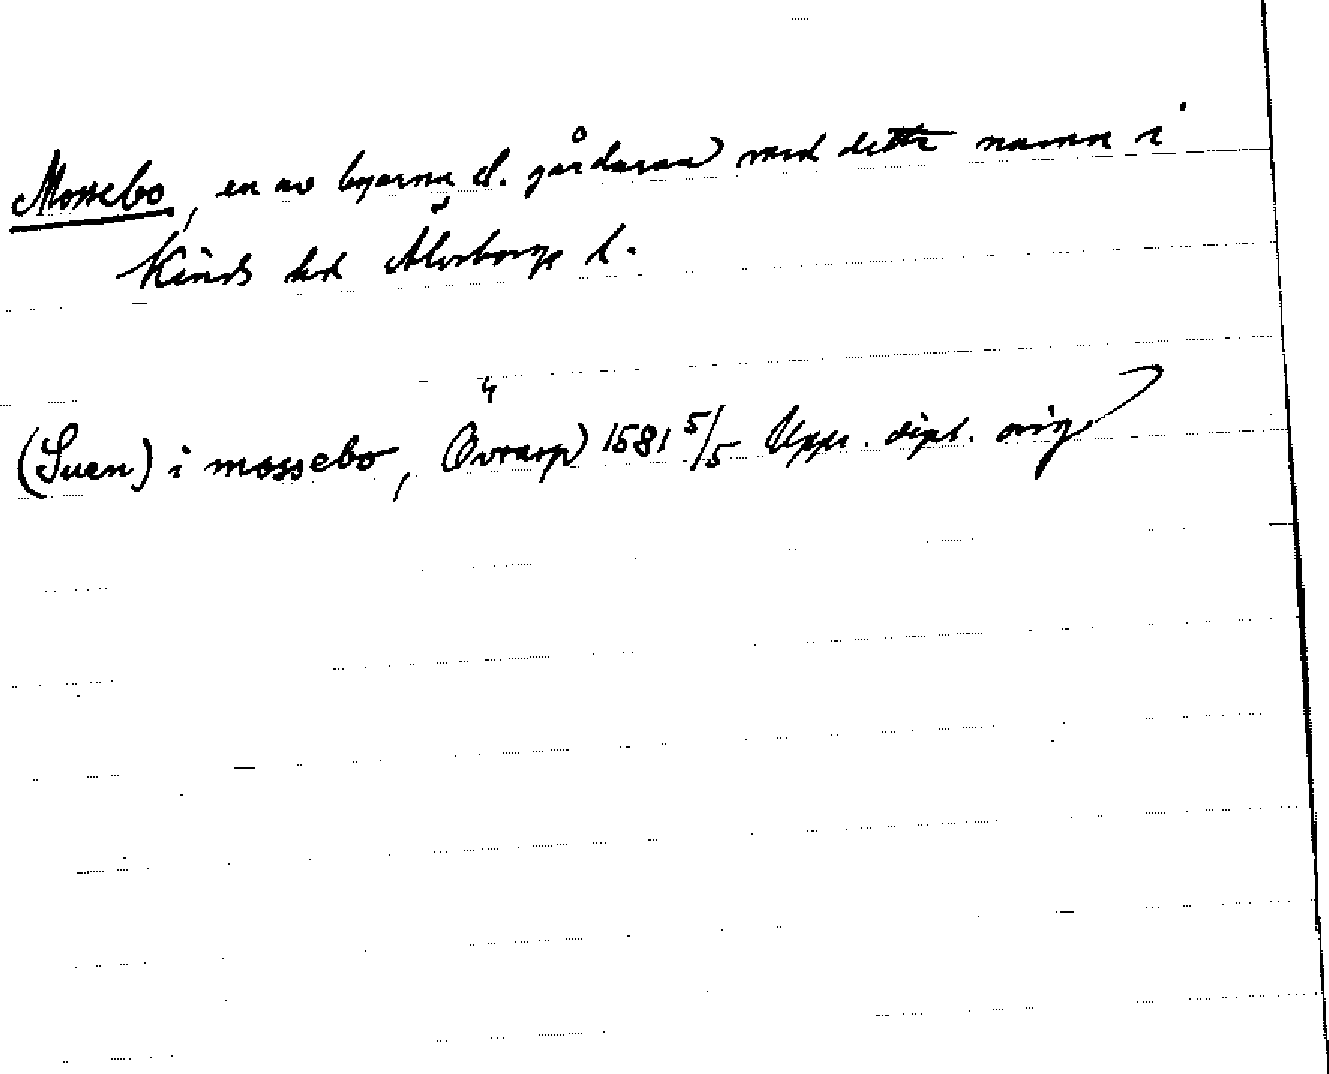 Mossebo, en av byarna el. gårdarna med detta namn i
Kinds hd Älvsborgs l.
(Suen) i mossebo, Övrarp) 1581 5/5 Upps. dipl. orig